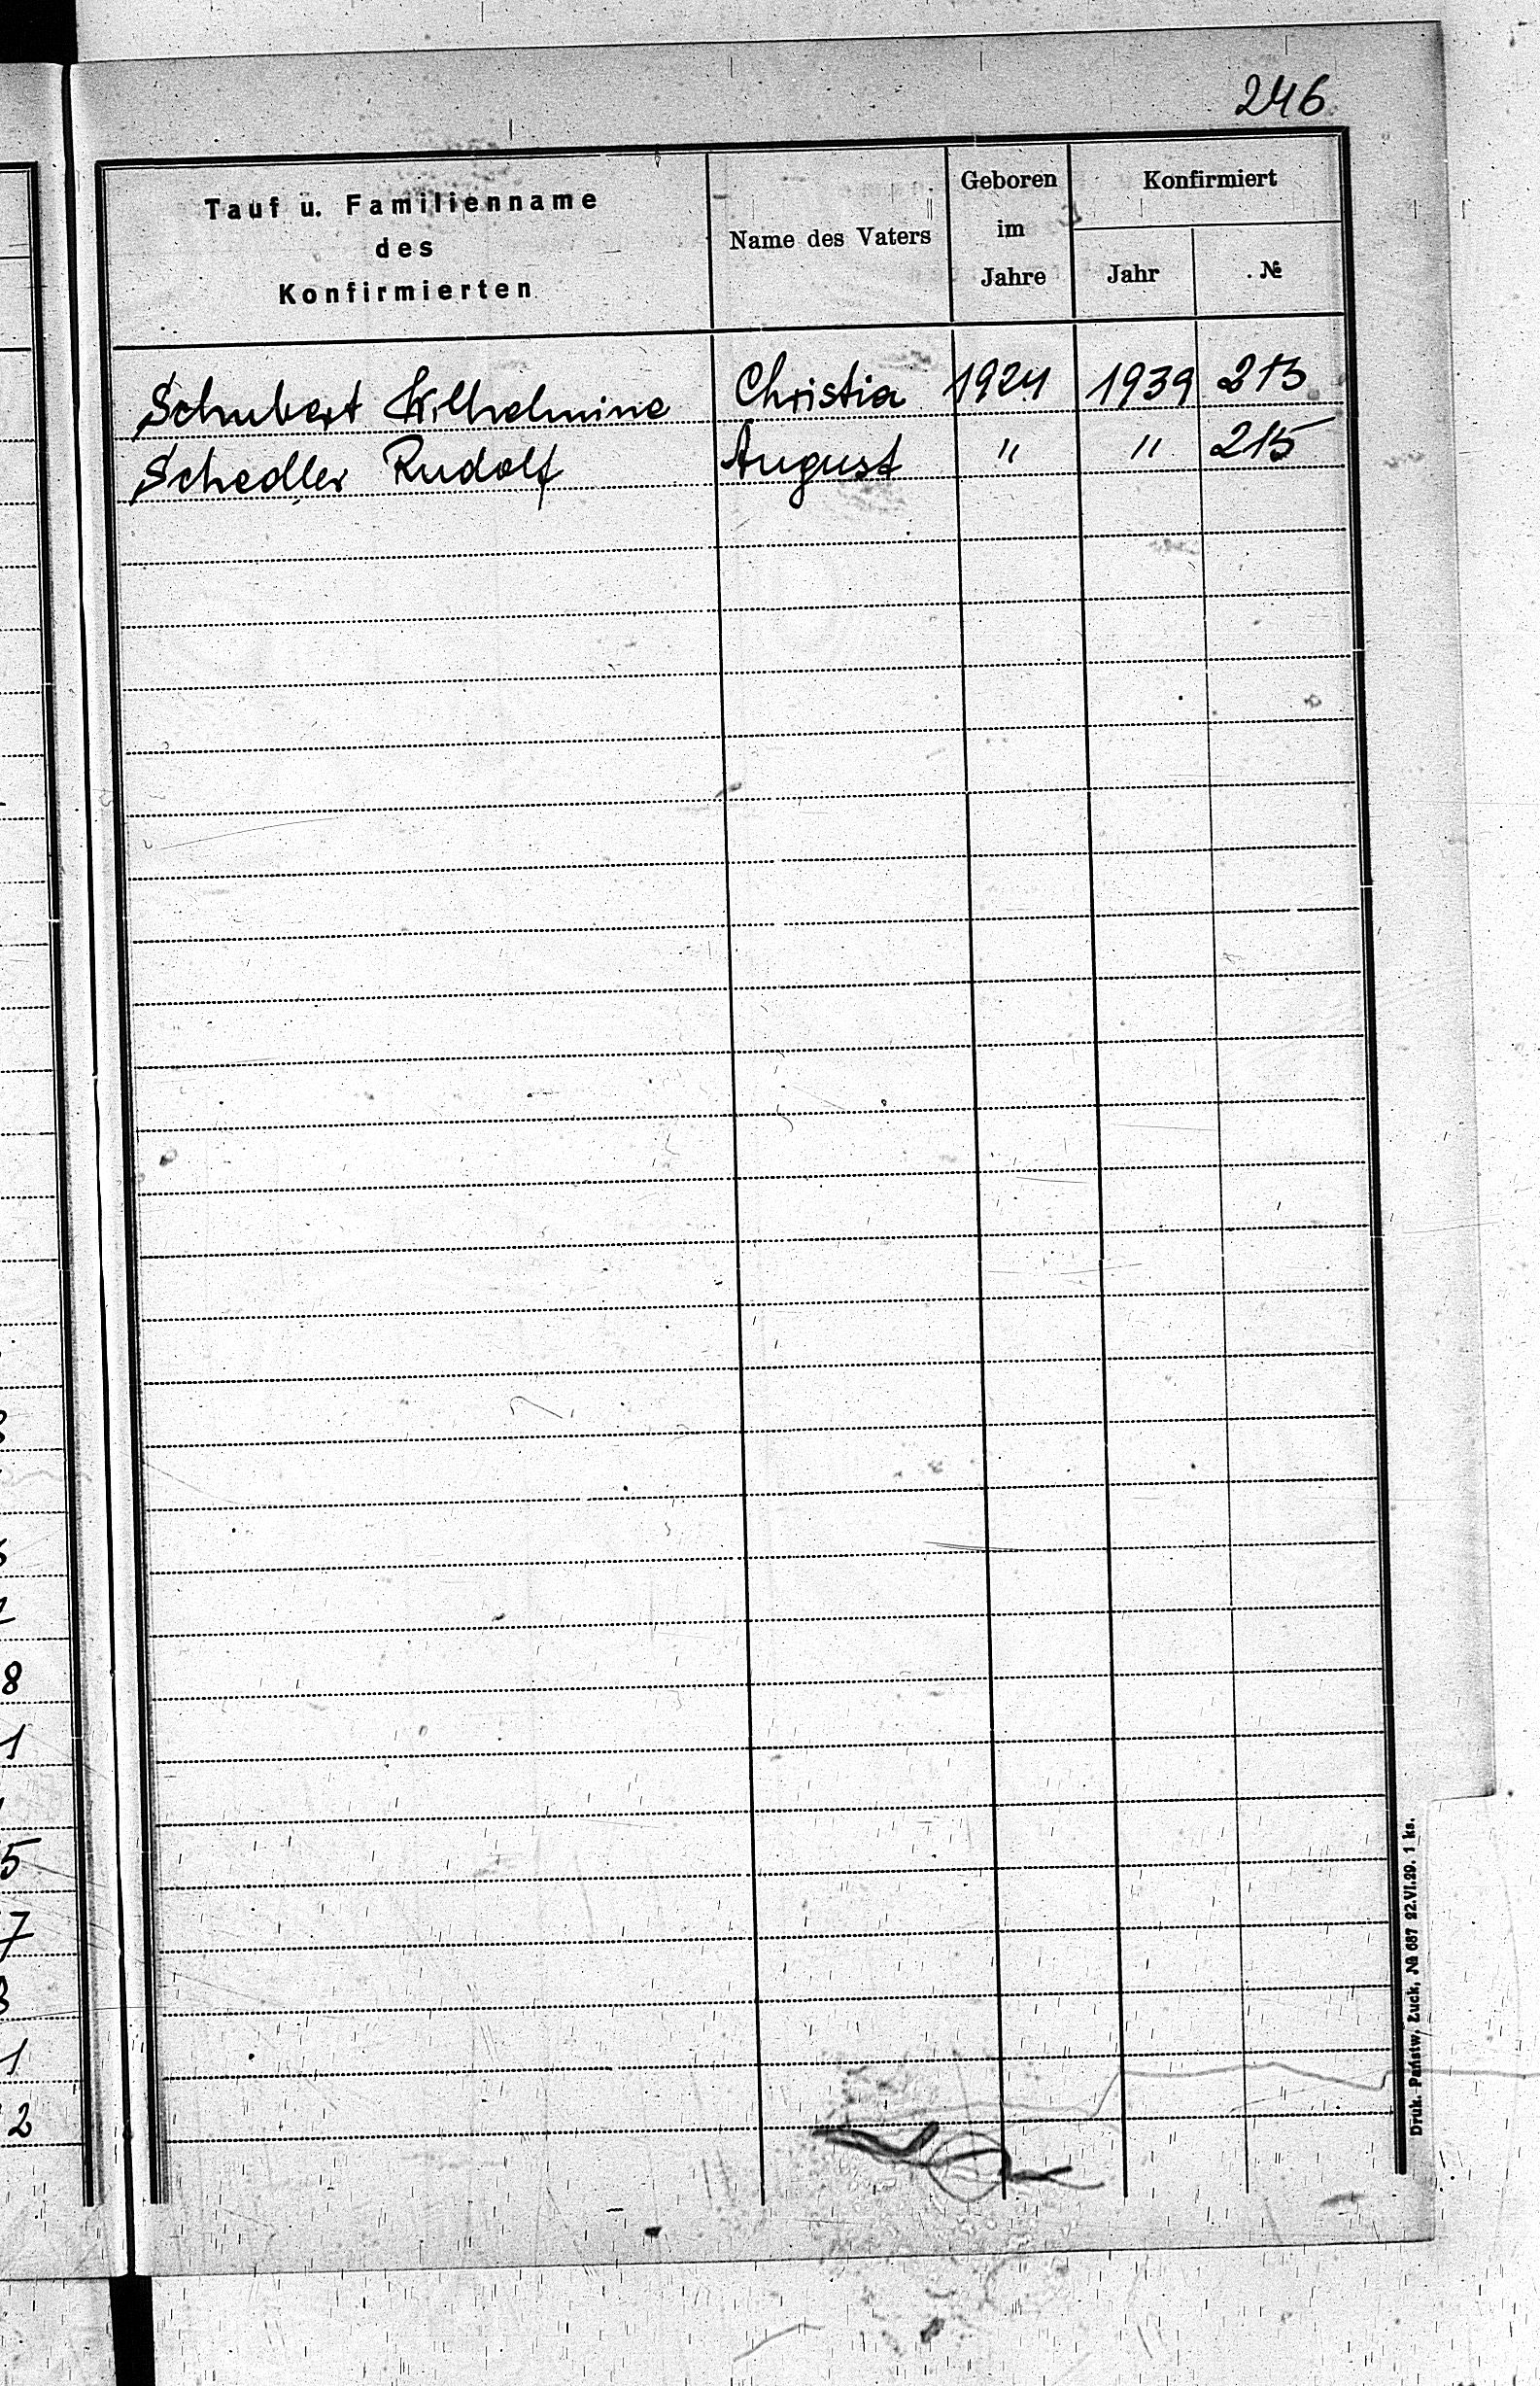 246
Tauf u. Familienname
des
Konfirmierten
Name des Vaters
Geboren
im
Jahre
Konfirmiert
Jahr
№
Schubert Wilhelmine Christia 1924 1939 213
Schedler Rudolf August " " 215
8
1
5
7
3
1
2
Druk. Państw. Łuck, № 687 22.VI.29. 1 ks.